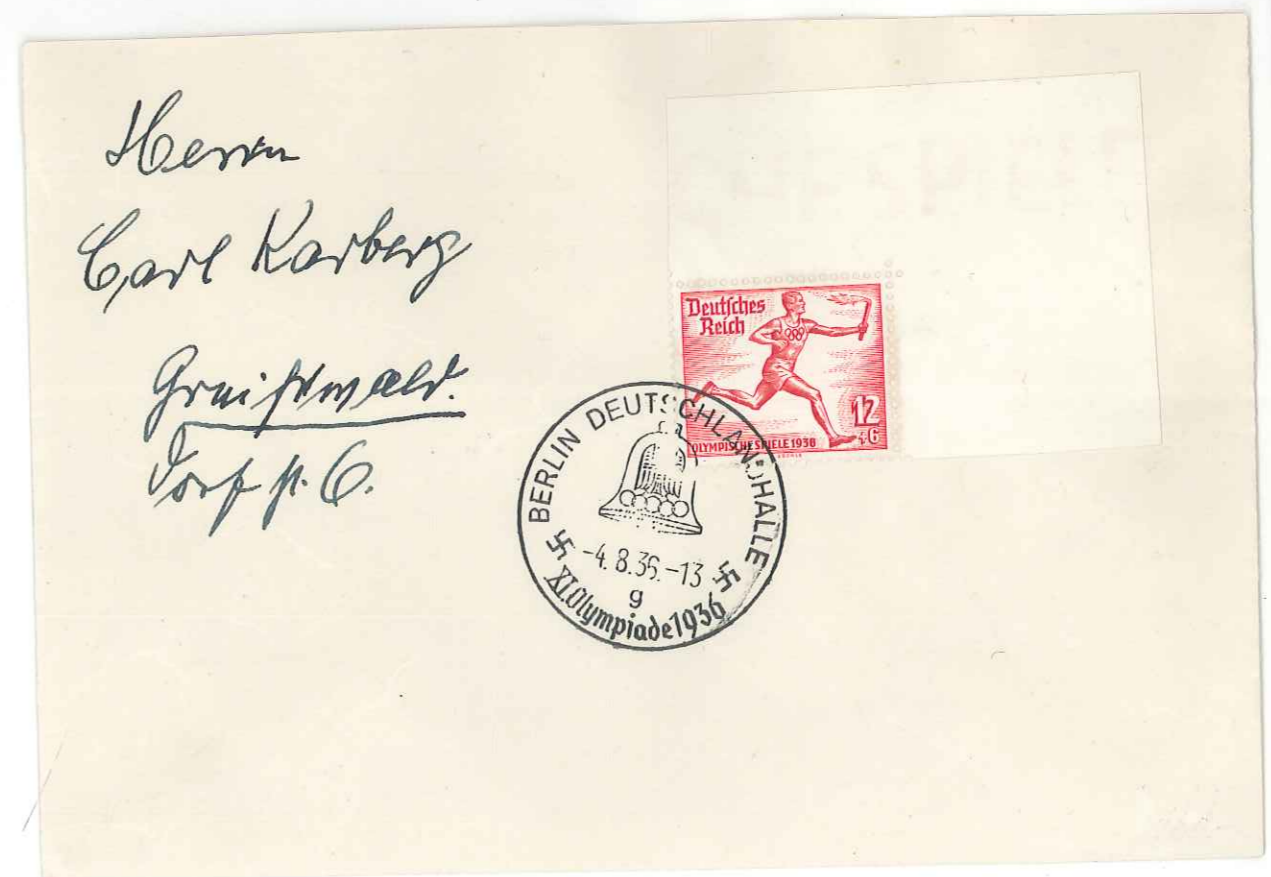 Herrn
Carl Karberg
Greifswald.
Dorfstr. 6.
Deutsches
Reich
12
+6
OLYMPISCHE SPIELE 1936
BERLIN DEUTSCHLANDHALLE
-4.8.36.-13
g
XI. Olympiade 1936